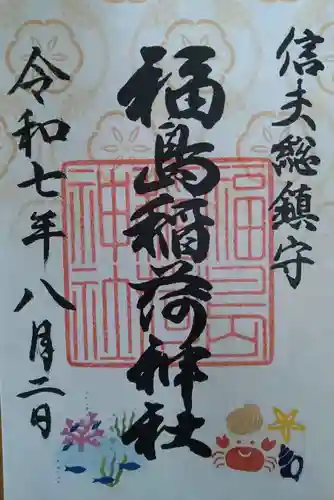 信夫総鎮守
福島稲荷神社
令和七年八月二日
福島稲荷神社